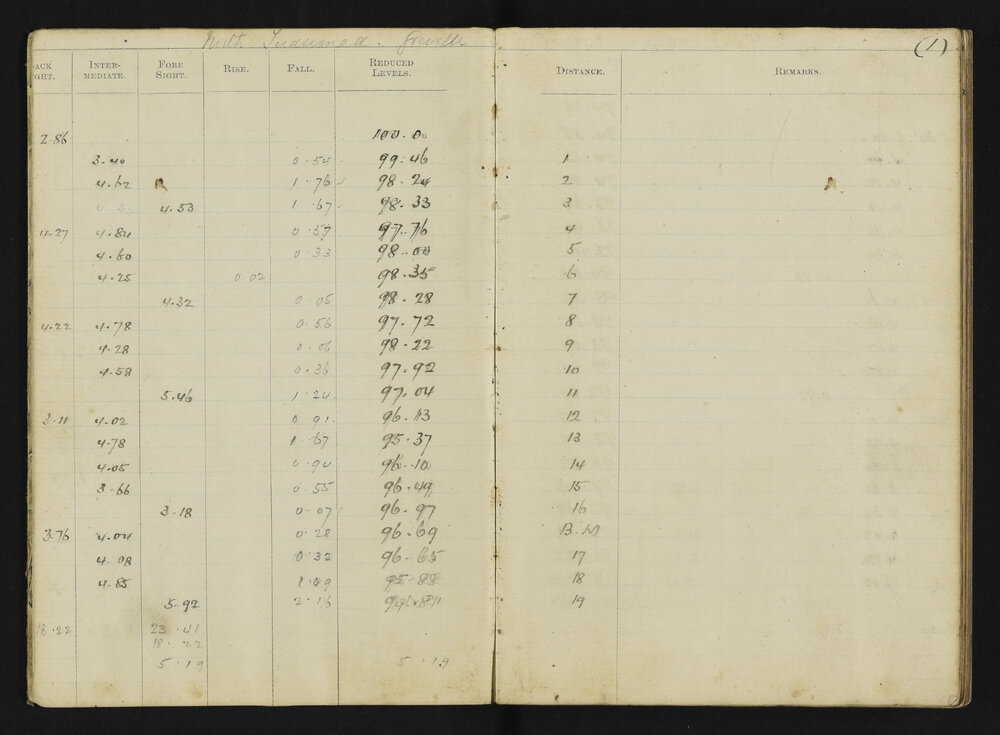 North . Greville
(1)
ACK GHT. INTER-MEDIATE. FORE SIGHT. RISE. FALL. REDUCED LEVELS. DISTANCE. REMARKS.
2.86 100.00
3.40 0.54 99.46 1
4.62 1.76 98.24 2
4.53 1.67 98.33 3
4.27 4.84 0.57 97.76 4
4.60 0.33 98.00 5
4.25 0.02 98.35 6
4.32 0.05 98.28 7
4.22 4.78 0.56 97.72 8
4.28 0.06 98.22 9
4.58 0.36 97.92 10
5.46 1.24 97.04 11
3.11 4.02 0.91 96.13 12
4.78 1.67 95.37 13
4.05 0.94 96.10 14
3.66 0.55 96.49 15
3.18 0.07 96.97 16
3.76 4.04 0.28 96.69 B.M
4.08 0.32 96.65 17
4.85 1.09 95.88 18
5.92 2.16 19
18.22 23.41
18.22
5.19 5.19